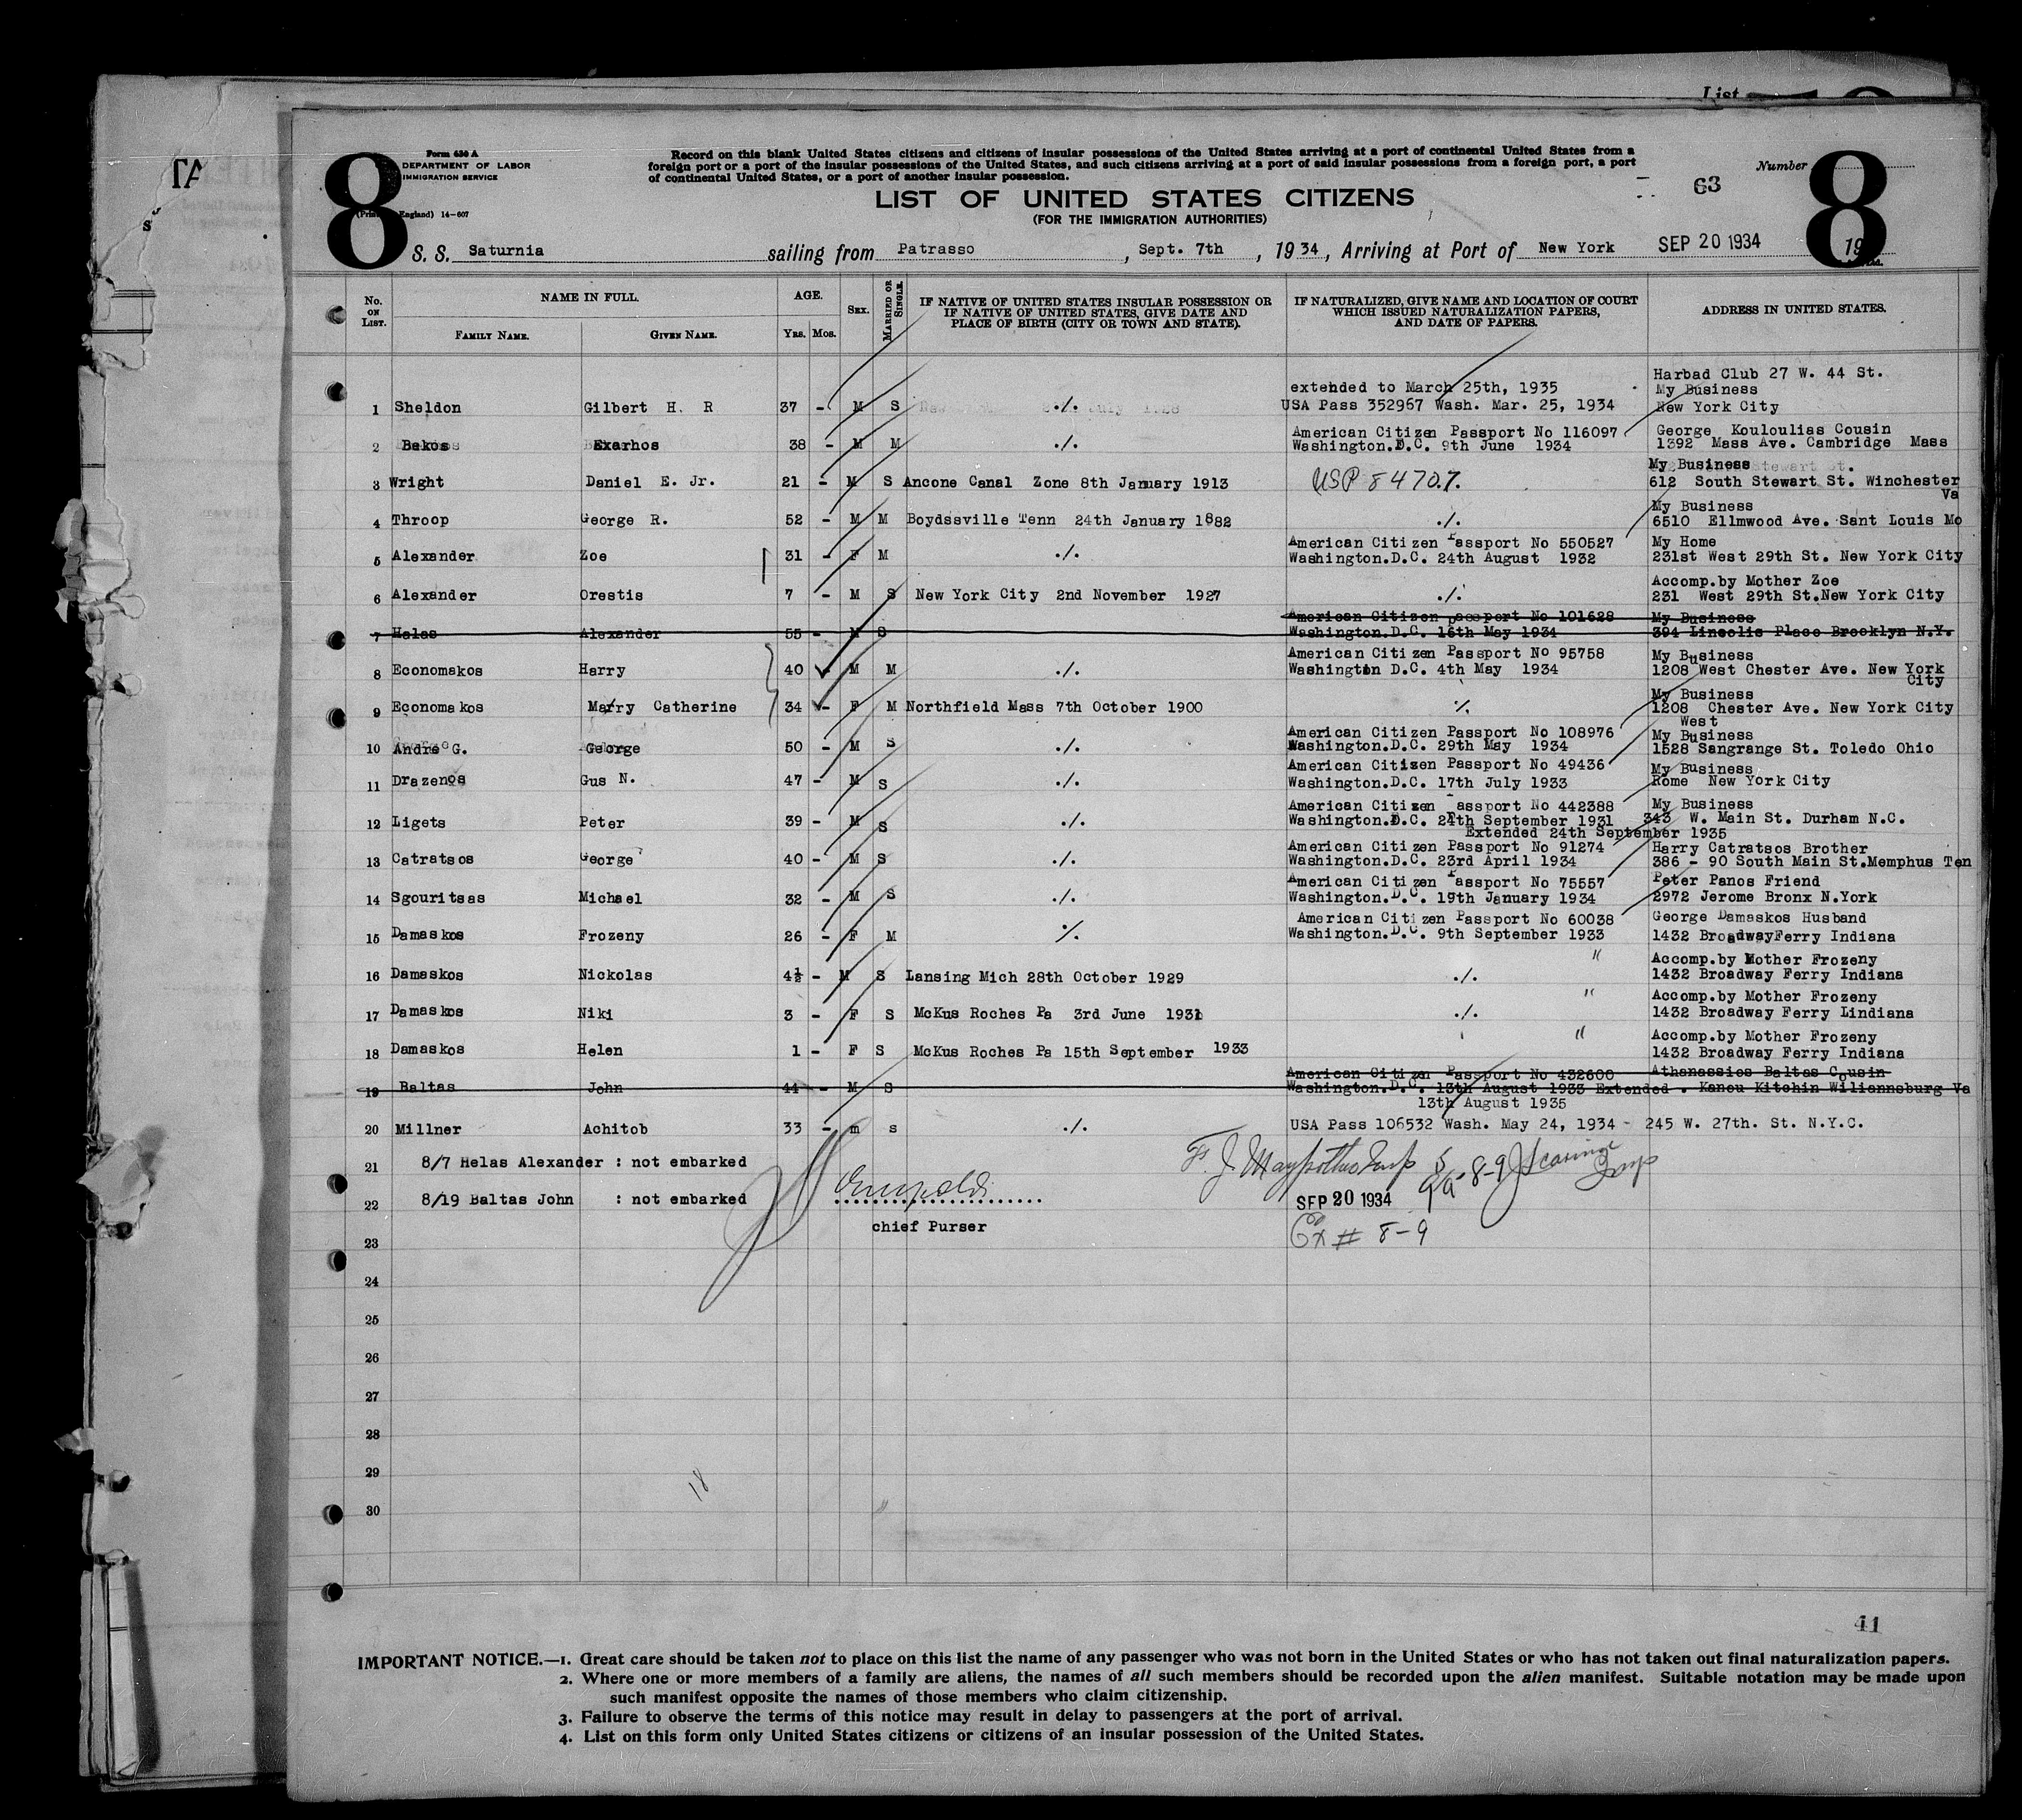 List
Form 630 A
DEPARTMENT OF LABOR
IMMIGRATION SERVICE
England) 14-607
Record on this blank United States citizens and citizens of insular possessions of the United States arriving at a port of continental United States from a
foreign port or a port of the insular possessions of the United States, and such citizens arriving at a port of said insular possessions from a foreign port, a port
of continental United States, or a port of another insular possession.
8
LIST OF UNITED STATES CITIZENS
(FOR THE IMMIGRATION AUTHORITIES)
63
Number 8
S. S. Saturnia sailing from Patrasso, Sept. 7th, 1934, Arriving at Port of New York SEP 20 1934 19
No. ON LIST.
NAME IN FULL.
FAMILY NAME. GIVEN NAME.
AGE.
YRS. MOS.
SEX.
MARRIED OR SINGLE.
IF NATIVE OF UNITED STATES INSULAR POSSESSION OR
IF NATIVE OF UNITED STATES, GIVE DATE AND
PLACE OF BIRTH (CITY OR TOWN AND STATE).
IF NATURALIZED, GIVE NAME AND LOCATION OF COURT
WHICH ISSUED NATURALIZATION PAPERS,
AND DATE OF PAPERS.
ADDRESS IN UNITED STATES.
Harbad Club 27 W. 44 St.
extended to March 25th, 1935 My Business
1 Sheldon Gilbert H. R 37 - M S ./. USA Pass 352967 Wash. Mar. 25, 1934 New York City
American Citizen Passport No 116097 George Kouloulias Cousin
2 Bakos Exarhos 38 - M M ./. Washington.D.C. 9th June 1934 1392 Mass Ave. Cambridge Mass
My Business
3 Wright Daniel E. Jr. 21 - M S Ancone Canal Zone 8th January 1913 USP 84707. 612 South Stewart St. Winchester
Va
My Business
4 Throop George R. 52 - M M Boydssville Tenn 24th January 1882 ./. 6510 Ellmwood Ave. Sant Louis Mo
American Citizen Passport No 550527 My Home
5 Alexander Zoe 31 - F M ./. Washington.D.C. 24th August 1932 231st West 29th St. New York City
Accomp.by Mother Zoe
6 Alexander Orestis 7 - M S New York City 2nd November 1927 ./. 231 West 29th St.New York City
American Citizen Passport No 101628 My Business
7 Helas Alexander 55 - M S Washington.D.C. 16th May 1934 394 Lincolis Place Brooklyn N.Y.
American Citizen Passport No 95758 My Business
8 Economakos Harry 40 - M M ./. Washington D.C. 4th May 1934 1208 West Chester Ave. New York
City
My Business
9 Economakos Marry Catherine 34 - F M Northfield Mass 7th October 1900 ./. 1208 Chester Ave. New York City
West
American Citizen Passport No 108976 My Business
10 Andre G. George 50 - M S ./. Washington.D.C. 29th May 1934 1528 Sangrange St. Toledo Ohio
American Citizen Passport No 49436 My Business
11 Drazenos Gus N. 47 - M S ./. Washington.D.C. 17th July 1933 Rome New York City
American Citizen Passport No 442388 My Business
12 Ligets Peter 39 - M S ./. Washington.D.C. 24th September 1931 343 W. Main St. Durham N.C.
Extended 24th September 1935
American Citizen Passport No 91274 Harry Catratsos Brother
13 Catratsos George 40 - M S ./. Washington.D.C. 23rd April 1934 386 - 90 South Main St.Memphus Ten
American Citizen Passport No 75557 Peter Panos Friend
14 Sgouritsas Michael 32 - M S ./. Washington.D.C. 19th January 1934 2972 Jerome Bronx N.York
American Citizen Passport No 60038 George Damaskos Husband
15 Damaskos Frozeny 26 - F M ./. Washington.D.C. 9th September 1933 1432 BroadwayFerry Indiana
" Accomp.by Mother Frozeny
16 Damaskos Nickolas 4½ - M S Lansing Mich 28th October 1929 ./. 1432 Broadway Ferry Indiana
" Accomp.by Mother Frozeny
17 Damaskos Niki 3 - F S McKus Roches Pa 3rd June 1931 ./. 1432 Broadway Ferry Lindiana
" Accomp.by Mother Frozeny
18 Damaskos Helen 1 - F S McKus Roches Pa 15th September 1933 1432 Broadway Ferry Indiana
American Citizen Passport No 432600 Athanassios Baltas Cousin
19 Baltas John 44 - M S Washington.D.C. 13th August 1933 Extended . Kanou Kitchin Wiliannsburg Va
13th August 1935
20 Millner Achitob 33 - m s ./. USA Pass 106532 Wash. May 24, 1934 - 245 W. 27th. St. N.Y.C.
21 8/7 Helas Alexander : not embarked
22 8/19 Baltas John : not embarked
8-9
SEP 20 1934
chief Purser
Ex # 8-9
23
24
25
26
27
28
29
18
30
41
IMPORTANT NOTICE.—1. Great care should be taken not to place on this list the name of any passenger who was not born in the United States or who has not taken out final naturalization papers.
2. Where one or more members of a family are aliens, the names of all such members should be recorded upon the alien manifest. Suitable notation may be made upon
such manifest opposite the names of those members who claim citizenship.
3. Failure to observe the terms of this notice may result in delay to passengers at the port of arrival.
4. List on this form only United States citizens or citizens of an insular possession of the United States.